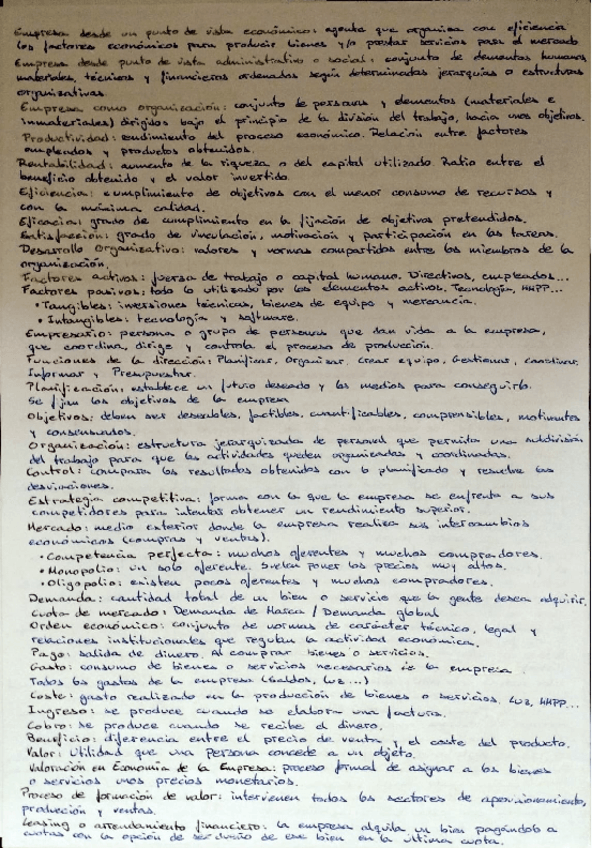 Empresa desde un punto de vista económico: agente que organiza con eficiencia
los factores económicos para producir bienes y/o prestar servicios para el mercado
Empresa desde punto de vista administrativo o social: conjunto de elementos humanos,
materiales, técnicos y financieros ordenados según determinadas jerarquías o estructuras
organizativas.
Empresa como organización: conjunto de personas y elementos (materiales e
inmateriales) dirigidos bajo el principio de la división del trabajo, hacia unos objetivos.
Productividad: rendimiento del proceso económico. Relación entre factores
empleados y productos obtenidos.
Rentabilidad: aumento de la riqueza o del capital utilizado. Ratio entre el
beneficio obtenido y el valor invertido.
Eficiencia: cumplimiento de objetivos con el menor consumo de recursos y
con la máxima calidad.
Eficacia: grado de cumplimiento en la fijación de objetivos pretendidos.
Satisfacción: grado de vinculación, motivación y participación en las tareas.
Desarrollo Organizativo: valores y normas compartidos entre los miembros de la
organización.
Factores activos: fuerza de trabajo o capital humano. Directivos, empleados...
Factores pasivos: todo lo utilizado por los elementos activos. Tecnología, MMPP...
• Tangibles: inversiones técnicas, bienes de equipo y mercancía.
• Intangibles: tecnología y software.
Empresario: persona o grupo de personas que dan vida a la empresa,
que coordina, dirige y controla el proceso de producción.
Funciones de la dirección: Planificar, Organizar, Crear equipo, Gestionar, Coordinar,
Informar y Presupuestar.
Planificación: establece un futuro deseado y los medios para conseguirlo.
Se fijan los objetivos de la empresa
Objetivos: deben ser deseables, factibles, cuantificables, comprensibles, motivantes
y consensuados.
Organización: estructura jerarquizada de personal que permita una subdivisión
del trabajo para que las actividades queden organizadas y coordinadas.
Control: compara los resultados obtenidos con lo planificado y resuelve las
desviaciones.
Estrategia competitiva: forma con la que la empresa se enfrenta a sus
competidores para intentar obtener un rendimiento superior.
Mercado: medio exterior donde la empresa realiza sus intercambios
económicos (compras y ventas).
• Competencia perfecta: muchos oferentes y muchos compradores.
• Monopolio: un solo oferente. Suelen poner los precios muy altos.
• Oligopolio: existen pocos oferentes y muchos compradores.
Demanda: cantidad total de un bien o servicio que la gente desea adquirir.
Cuota de mercado: Demanda de Marca / Demanda global
Orden económico: conjunto de normas de carácter técnico, legal y
relaciones institucionales que regulan la actividad económica.
Pago: salida de dinero. Al comprar bienes o servicios.
Gasto: consumo de bienes o servicios necesarios de la empresa
Todos los gastos de la empresa (Sueldos, luz...)
Coste: gasto realizado en la producción de bienes o servicios. Luz, MMPP...
Ingreso: se produce cuando se elabora una factura.
Cobro: se produce cuando se recibe el dinero.
Beneficio: diferencia entre el precio de venta y el coste del producto.
Valor: Utilidad que una persona concede a un objeto.
Valoración en Economía de la Empresa: proceso formal de asignar a los bienes
o servicios unos precios monetarios.
Proceso de formación de valor: intervienen todos los sectores de aprovisionamiento,
producción y ventas.
Leasing o arrendamiento financiero: la empresa alquila un bien pagándolo a
cuotas con la opción de ser dueño de ese bien en la última cuota.